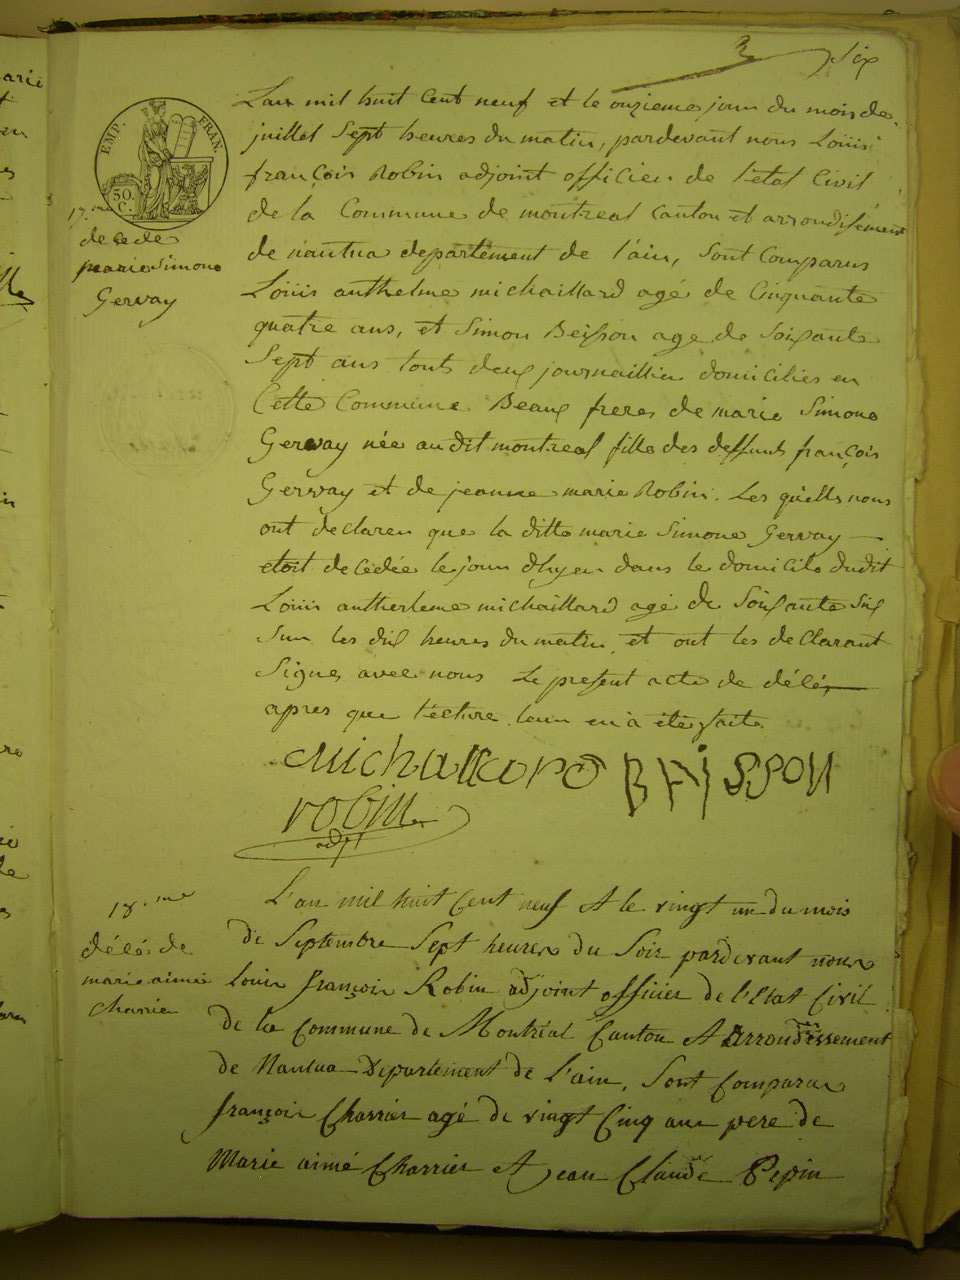 Six
EMP. FRAN.
30. C.
17.me
de Cé de
marie Simone
Gervay
L'an mil huit Cent neuf et le onzieme jour du mois de
juillet Sept heures du matin, pardevant nous Loüis
françois Robin adjoint officier de l'etat Civil
de la Commune de montreal Canton et arrondisement
de nantua departement de l'ain, Sont Comparus
Loüis anthelme michaillard agé de Cinquante
quatre ans, et Simon Beisson age de Soixante
Sept ans touts deux journaillier domiciliés en
Cette Commune Beaux freres de marie Simone
Gervay née audit montreal fille des deffunts françois
Gervay et de jeanne marie Robin. Les quells nous
ont declaren que la ditte marie Simone Gervay
etoit de Cédée le jour d'hyer dans le domicile dudit
Loüis antherleme michaillard agé de Soixante Six
Sur les dix heures du matin, et ont les de Clarant
Signes avec nous Le present acte de délés
apres que l'ecture leur en a été faite
Michallard BEISSON
robin
adjt
18.me
délés de
marie aimée
Charrie
L'an mil huit Cent neuf et le vingt un du mois
de Septembre Sept heures du Soir pardevant nous
louis françois Robin adjoint officier de l'Etat Civil
de la Commune de Montréal Canton et Arrondissement
de Nantua Département de L'ain, Sont Comparus
françois Charrier agé de vingt Cinq ans pere de
Marie aimé Charrier et Jean Claude Pepin